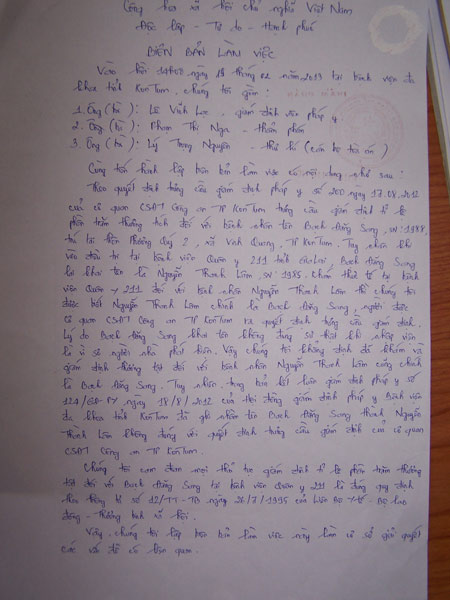 Cộng hòa xã hội chủ nghĩa Việt Nam
Độc lập - Tự do - Hạnh phúc
BIÊN BẢN LÀM VIỆC
Vào hồi ngày 18 tháng 02 năm 2013 tại bệnh viện đa
khoa tỉnh KonTum, chúng tôi gồm:
1. Ông (bà): Lê Vinh giám định viên pháp y
2. Ông (bà): Phạm Thị Nga - thẩm phán
3. Ông (bà): Lý Trung Nguyên - thư kí (cán bộ tòa án)
Cùng tiến hành lập biên bản làm việc có nội dung như sau:
Theo quyết định trưng cầu giám định pháp y số 200 ngày 17.08.2012
của cơ quan CSĐT Công an TP KonTum trưng cầu giám định tỉ lệ
phần trăm thương tích đối với bệnh nhân tên Bạch Đông Song, SN: 1988,
trú tại thôn Phương Quý 2, xã Vinh Quang, TP KonTum. Tuy nhiên khi
vào điều trị tại bệnh viện Quân y 211 tỉnh GiaLai, Bạch Đông Song
lại khai tên là Nguyễn Thanh Lâm, SN: 1985. tại bệnh
viện Quân y 211 đối với bệnh nhân Nguyễn Thanh Lâm thì chúng tôi
được biết Nguyễn Thanh Lâm chính là Bạch Đông Song, người được
cơ quan CSĐT Công an TP KonTum ra quyết định trưng cầu giám định.
Lý do Bạch Đông Song khai tên không đúng sự thật khi nhập viện
là vì sợ người nhà phát hiện. Vậy chúng tôi khẳng định đã khám và
giám định thương tật đối với bệnh nhân Nguyễn Thanh Lâm cũng chính
là Bạch Đông Song. Tuy nhiên, trong bản kết luận giám định pháp y số
ngày 18/8/2012 của hội đồng giám định pháp y Bệnh viện
đa khoa tỉnh KonTum đã ghi nhầm tên Bạch Đông Song thành Nguyễn
Thành Lâm không đúng với quyết định trưng cầu giám định của cơ quan
CSĐT Công an TP KonTum.
Chúng tôi cam đoan mọi thủ tục giám định tỉ lệ phần trăm thương
tật đối với Bạch Đông Song tại bệnh viện Quân y 211 là đúng quy định
theo thông tư số 12/TT-LB ngày 26/7/1995 của Liên Bộ Y tế - Bộ lao
động - Thương binh xã hội.
Vậy, chúng tôi lập biên bản làm việc này làm cơ sở giải quyết
các vấn đề có liên quan.